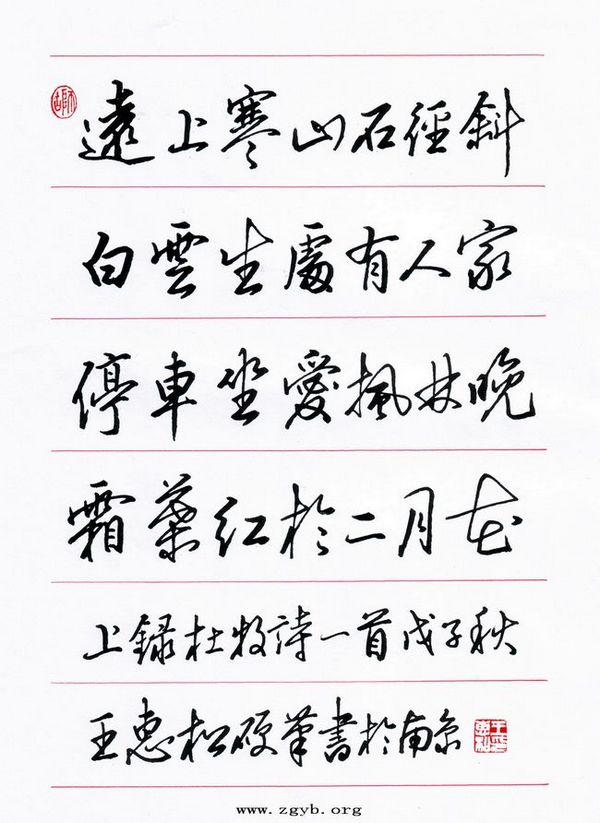 遠上寒山石徑斜
白雲生處有人家
停車坐愛楓林晚
霜葉紅於二月花
上録杜牧詩一首戊子秋
王惠松硬筆書於南京
王惠松
www.zgyb.org